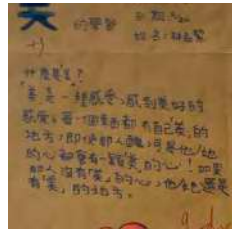 美 的學習
什麼是美?
美是一種感受,感到美好的
感覺,每一個東西都有自己美的
地方,即使那人醜,可是他/她
的心都會有一顆美的心!如果
那人沒有美的心,他/她還是
有美的地方。